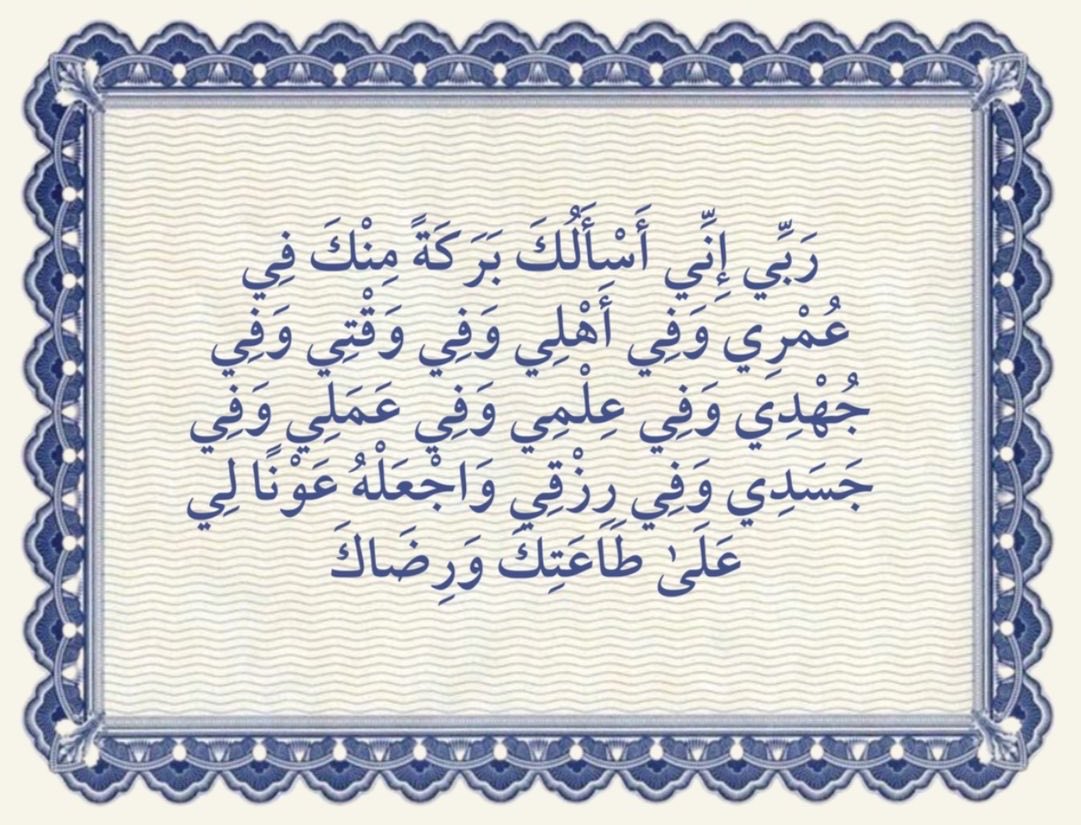 رَبِّي إِنِّي أَسْأَلُكَ بَرَكَةً مِنْكَ فِي
عُمْرِي وَفِي أَهْلِي وَفِي وَقْتِي وَفِي
جُهْدِي وَفِي عِلْمِي وَفِي عَمَلِي وَفِي
جَسَدِي وَفِي رِزْقِي وَاجْعَلْهُ عَوْنًا لِي
عَلَىٰ طَاعَتِكَ وَرِضَاكَ